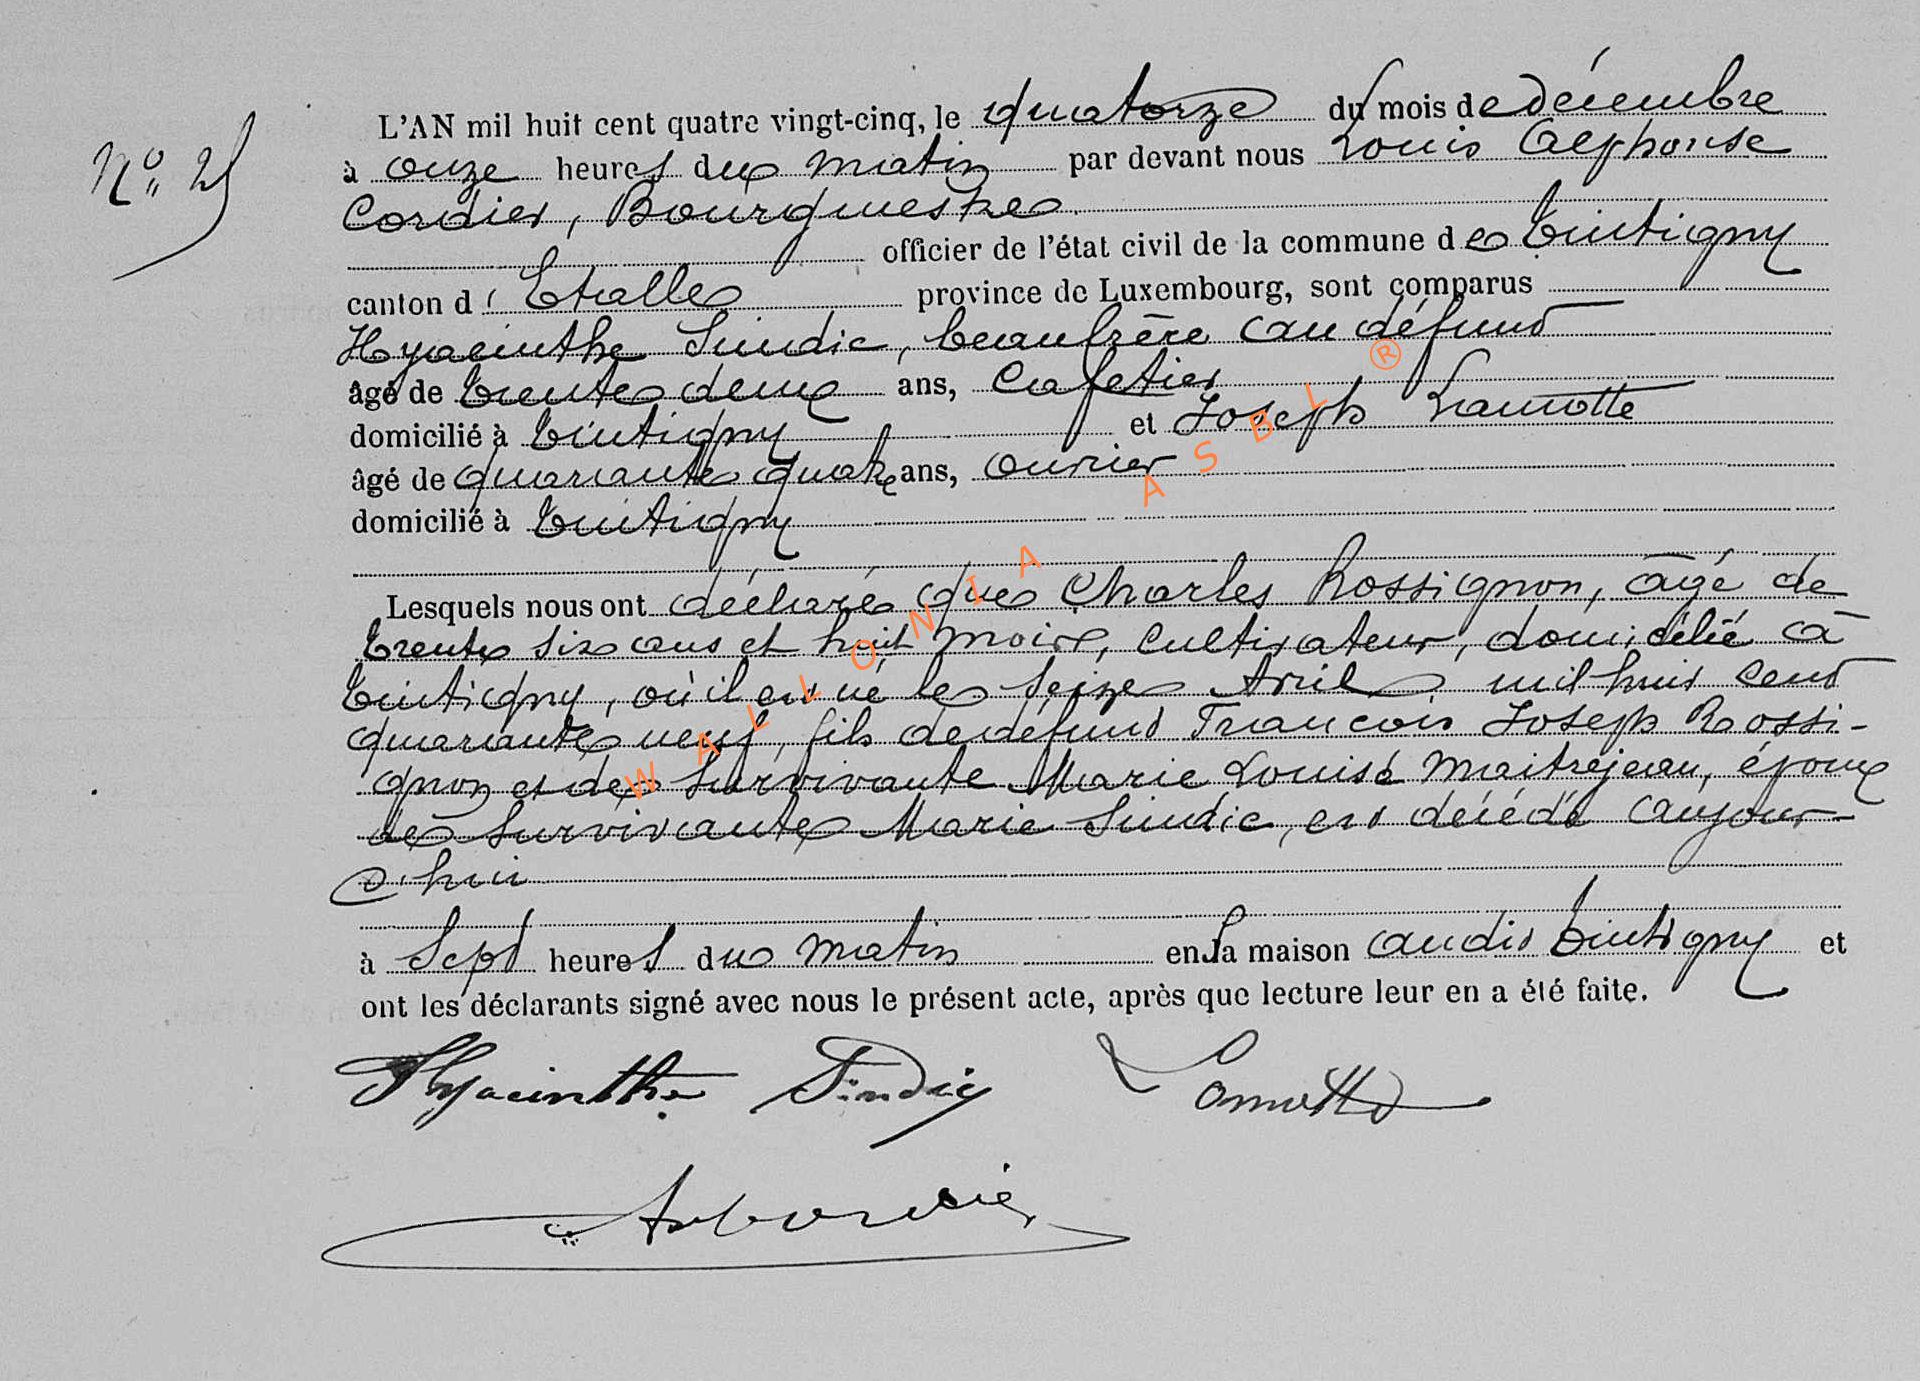 L'AN mil huit cent quatre vingt-cinq, le quatorze du mois de décembre
N° 25
à onze heures du matin par devant nous Louis Alphonse
Cordier, Bourgmestre
officier de l'état civil de la commune de Tintigny
canton d'Etalle province de Luxembourg, sont comparus
Hyacinthe Sindic, beaufrère au défunt
âgé de trente deux ans, Cafetier
domicilié à Tintigny et Joseph Lamotte
âgé de quarante quatre ans, ouvrier
domicilié à Tintigny
Lesquels nous ont déclaré que Charles Rossignon, âgé de
trente six ans et huit mois, cultivateur, domicilié à
Tintigny, où il est né le seize Avril mil huit cent
quarante neuf, fils de défunt François Joseph Rossi-
gnon et de survivante Marie Louise Maitrejean, époux
de survivante Marie Sindic, est décédé aujour-
d'hui
à sept heures du matin en sa maison audit Tintigny et
ont les déclarants signé avec nous le présent acte, après que lecture leur en a été faite.
Hyacinthe Sindic Lamotte
WALLONIA ASBL ®